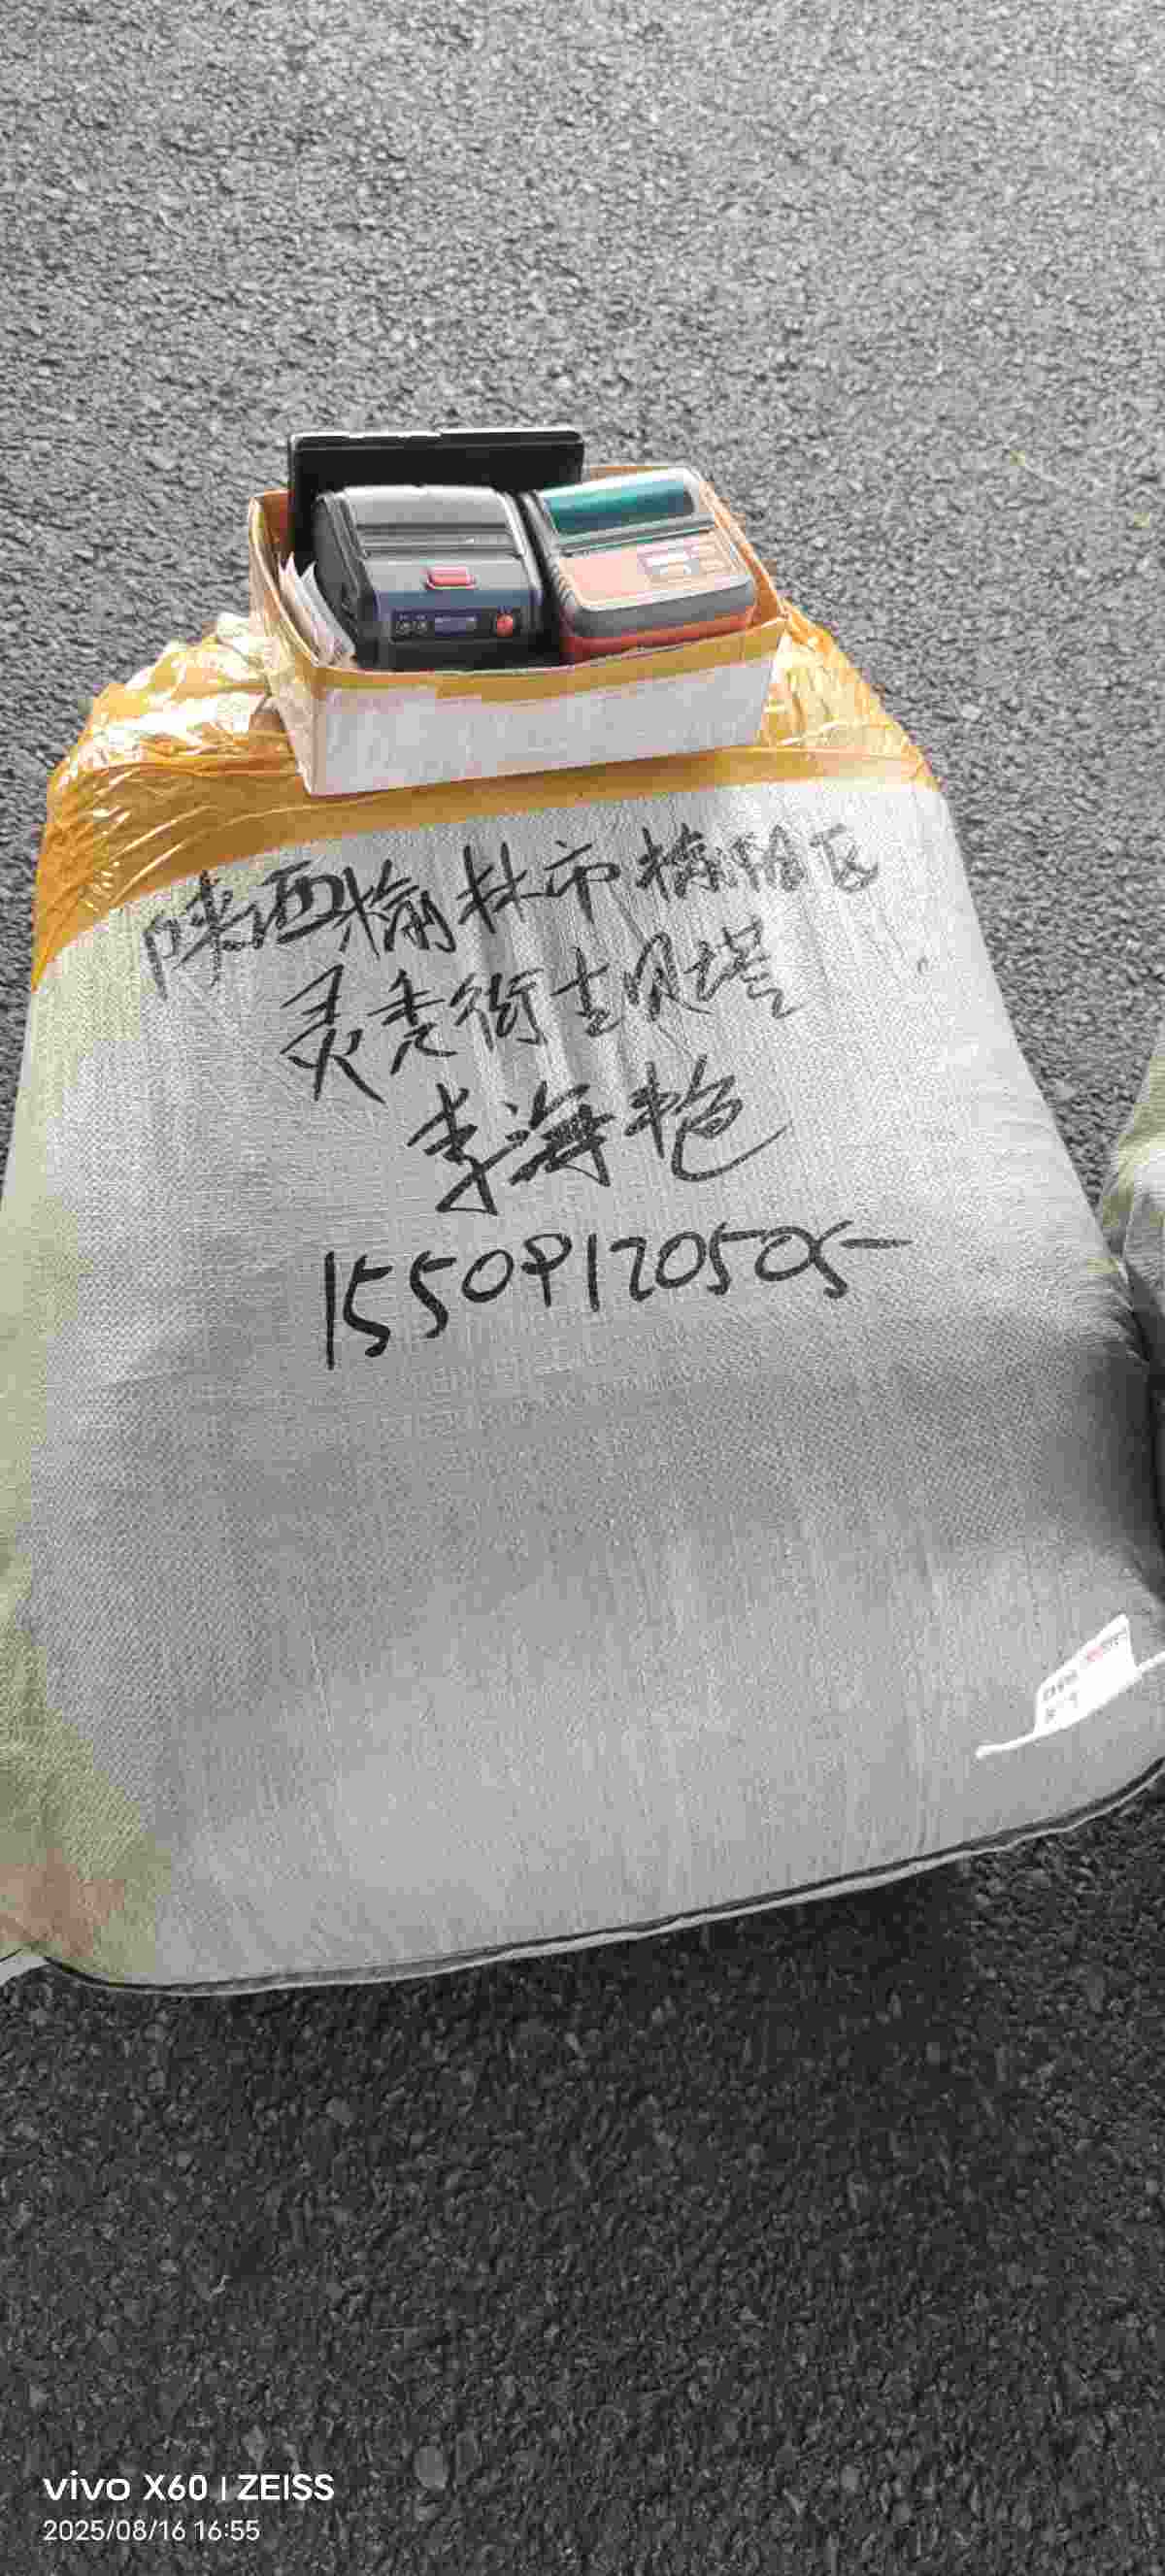 陕西榆林市榆阳区
灵秀街吉贝塔
李海艳
15509120505
vivo X60 | ZEISS
2025/08/16 16:55